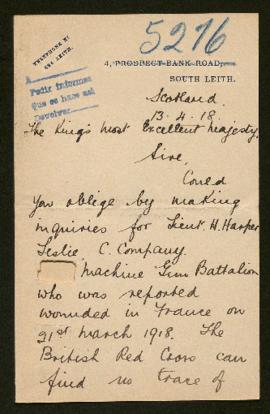 5276
TELEPHONE NO
LEITH.
4, PROSPECT BANK ROAD,
SOUTH LEITH.
Pedir informes
Que se haca así
Devolver
Scotland.
13. 4. 18.
The King's Most Excellent Majesty.
Sire,
Could
you oblige by making
inquiries for Lieut. H. Harper
Leslie. C. Company.
Machine Gun Battalion
who was reported
wounded in France on
21st March 1918. The
British Red Cross can
find no trace of